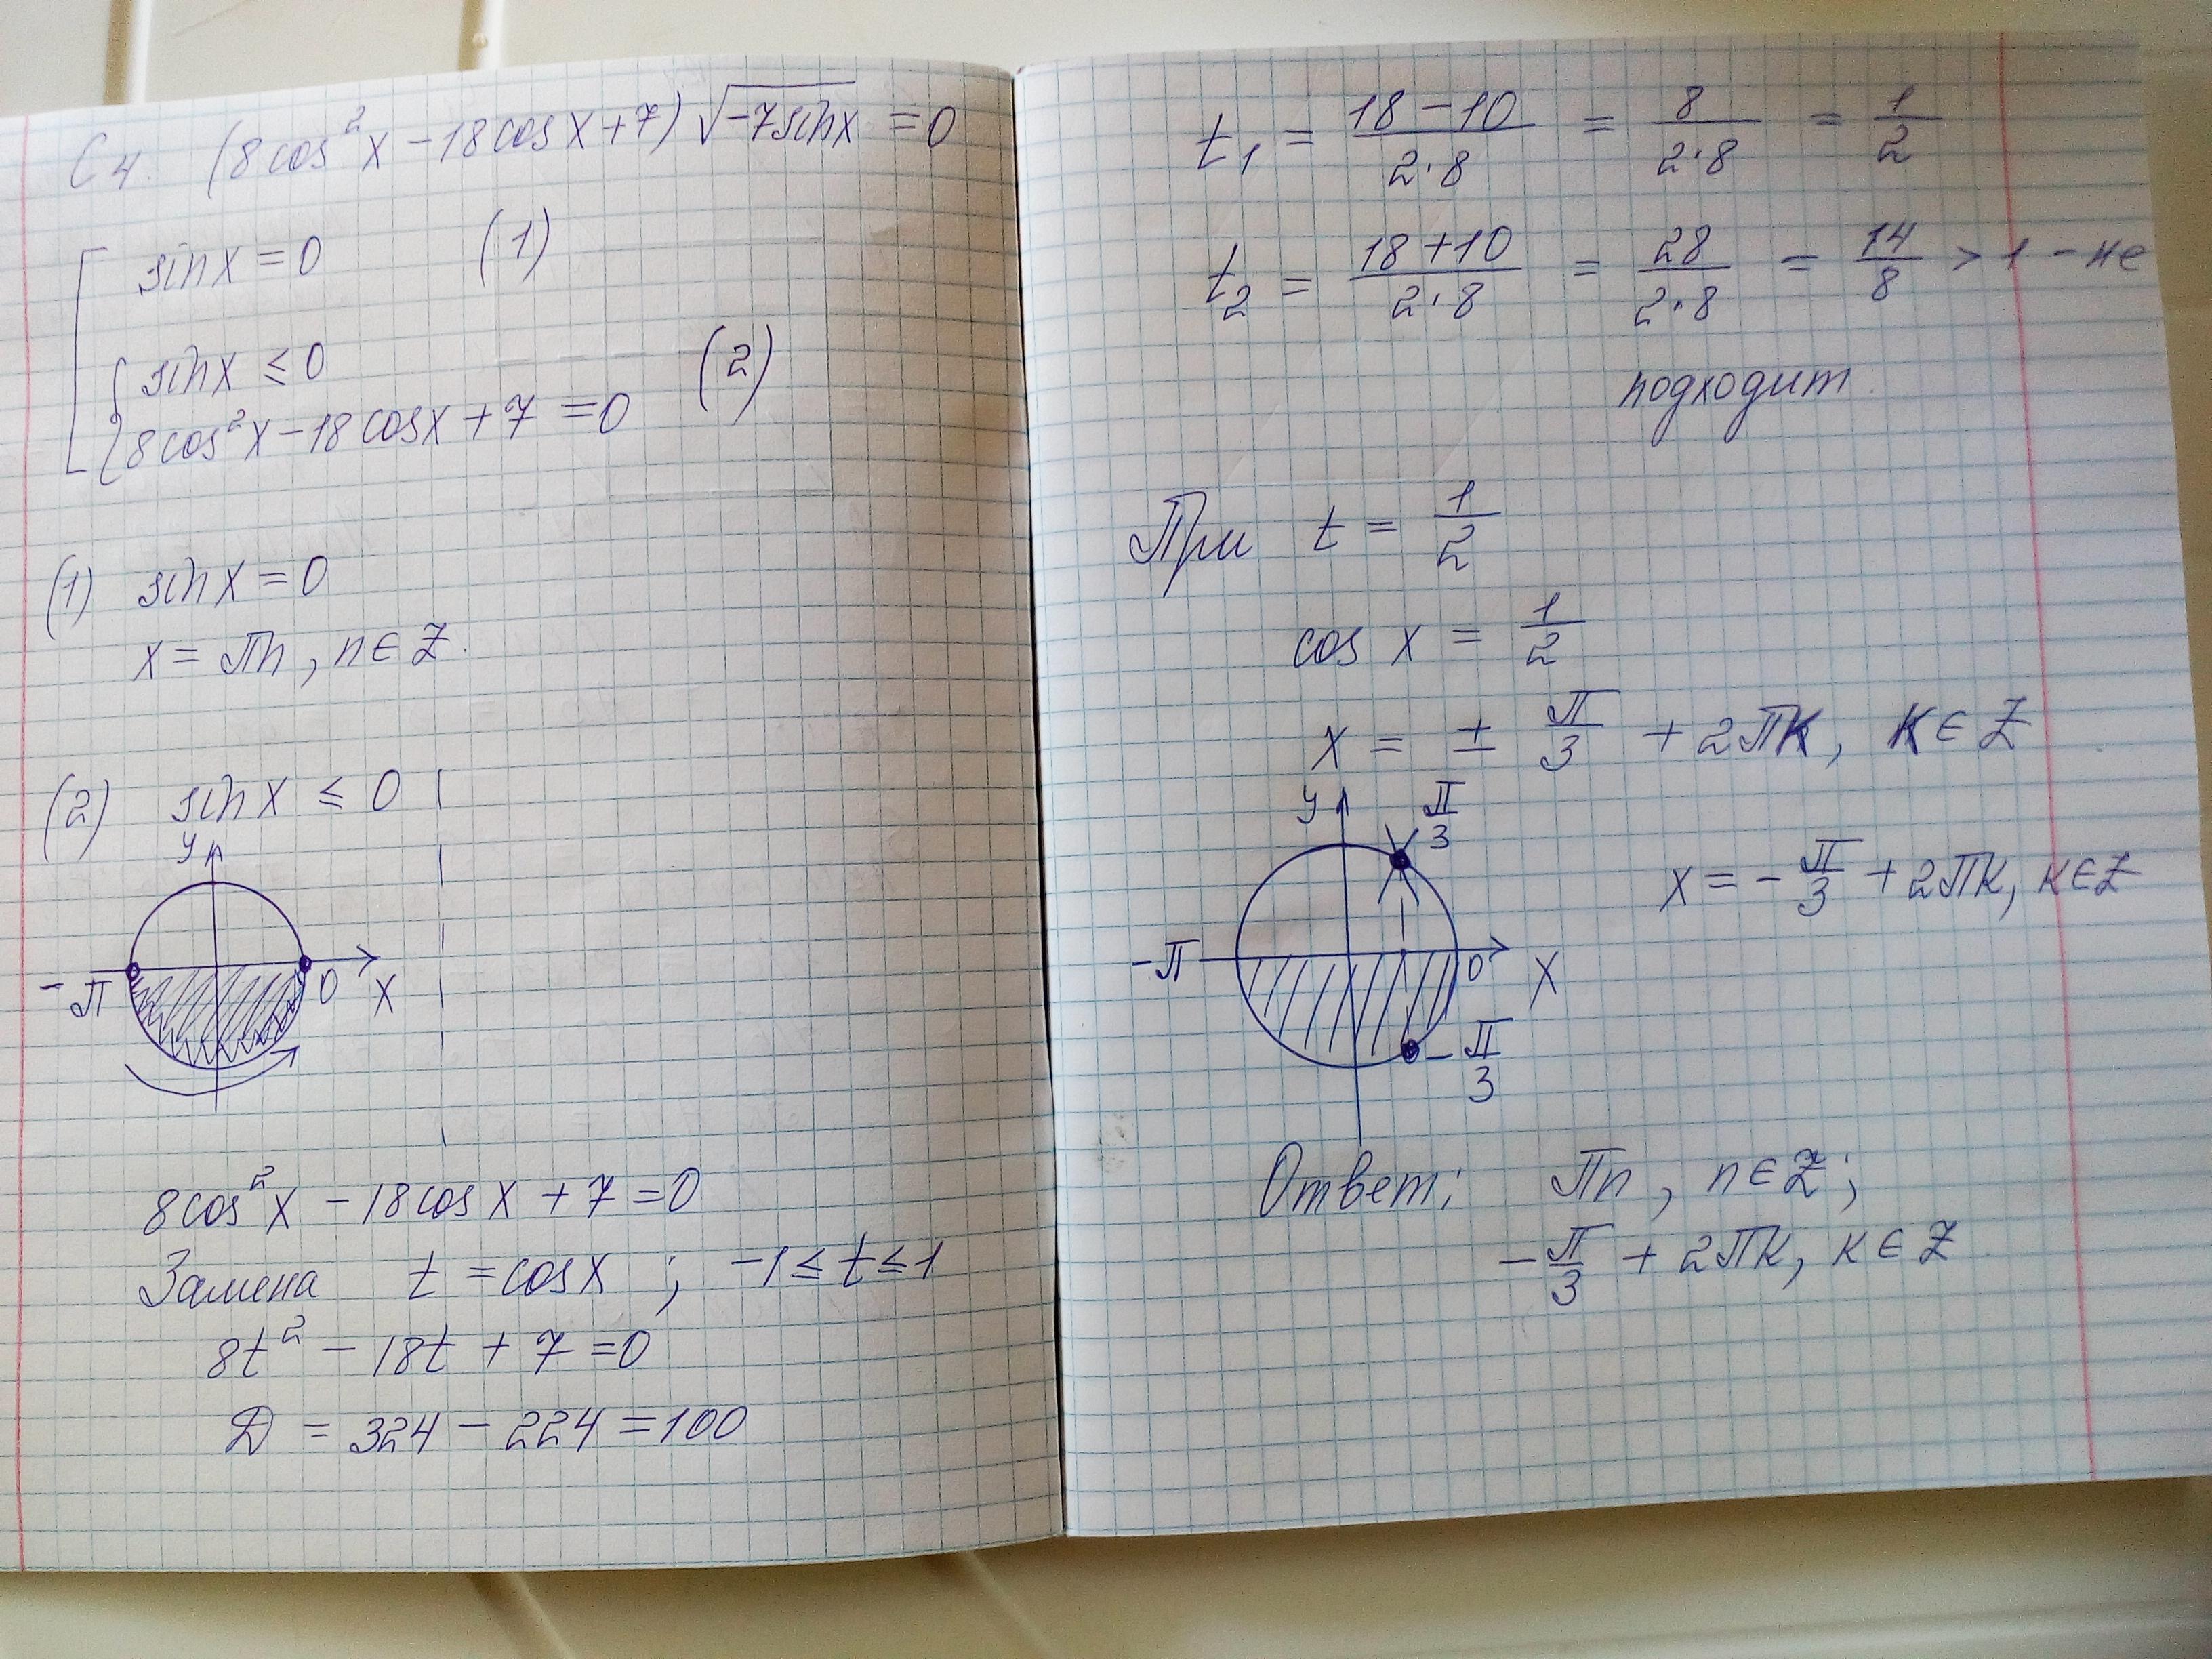 С4. (8cos²x − 18cosx + 7) √−7sinx = 0
sinx = 0 (1)
sinx ≤ 0
8cos²x − 18cosx + 7 = 0 (2)
(1) sinx = 0
x = πn, n ∈ Z.
(2) sinx ≤ 0
y
−π 0 x
8cos²x − 18cosx + 7 = 0
Замена t = cosx ; −1 ≤ t ≤ 1
8t² − 18t + 7 = 0
D = 324 − 224 = 100
t₁ = (18 − 10)/(2·8) = 8/(2·8) = 1/2
t₂ = (18 + 10)/(2·8) = 28/(2·8) = 14/8 > 1 − не
подходит.
При t = 1/2
cos x = 1/2
x = ± π/3 + 2πк, к ∈ Z
y π/3
x = − π/3 + 2πк, к ∈ Z
−π 0 x
− π/3
Ответ: πn, n ∈ Z;
− π/3 + 2πк, к ∈ Z.